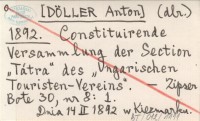 [DÖLLER Anton] (dbr.)
1892. Constituirende
Versammlung der Section
„Tátra" des „Ungarischen
Touristen-Vereins". — Zipser
Bote 30, nr 8: 1.
Dnia 14 II 1892 w Kiezmarku.